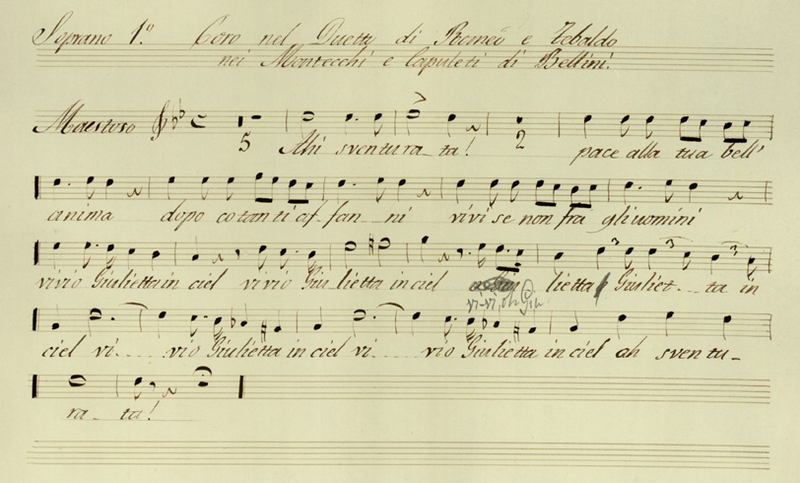 Soprano 1º. Coro nel Duetto di Romeo e Tebaldo
nei Montecchi e Capuleti di Bellini.
Maestoso 5 2
Ahi sventura_ta! pace alla tua bell'
anima dopo cotanti af_fan_ni vivi se non fra gli uomini
vivi o Giulietta in ciel vivi o Giu_lietta in ciel lietta Giuliet_ta in
vi-vi, oh Giu
ciel vi_ vi o Giulietta in ciel vi_ vi o Giulietta in ciel ah sventu_
ra_ta!